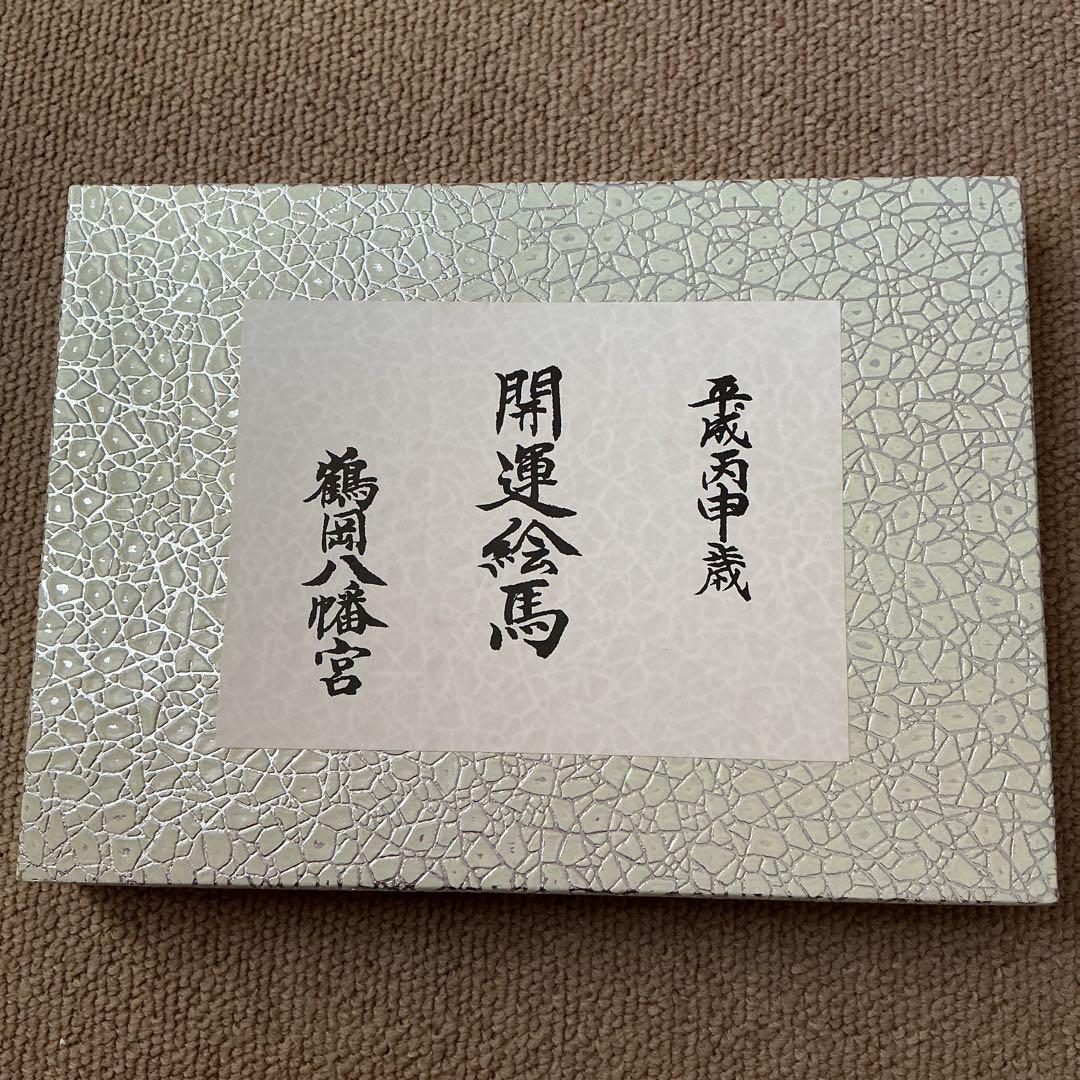 平成丙申歳
開運絵馬
鶴岡八幡宮